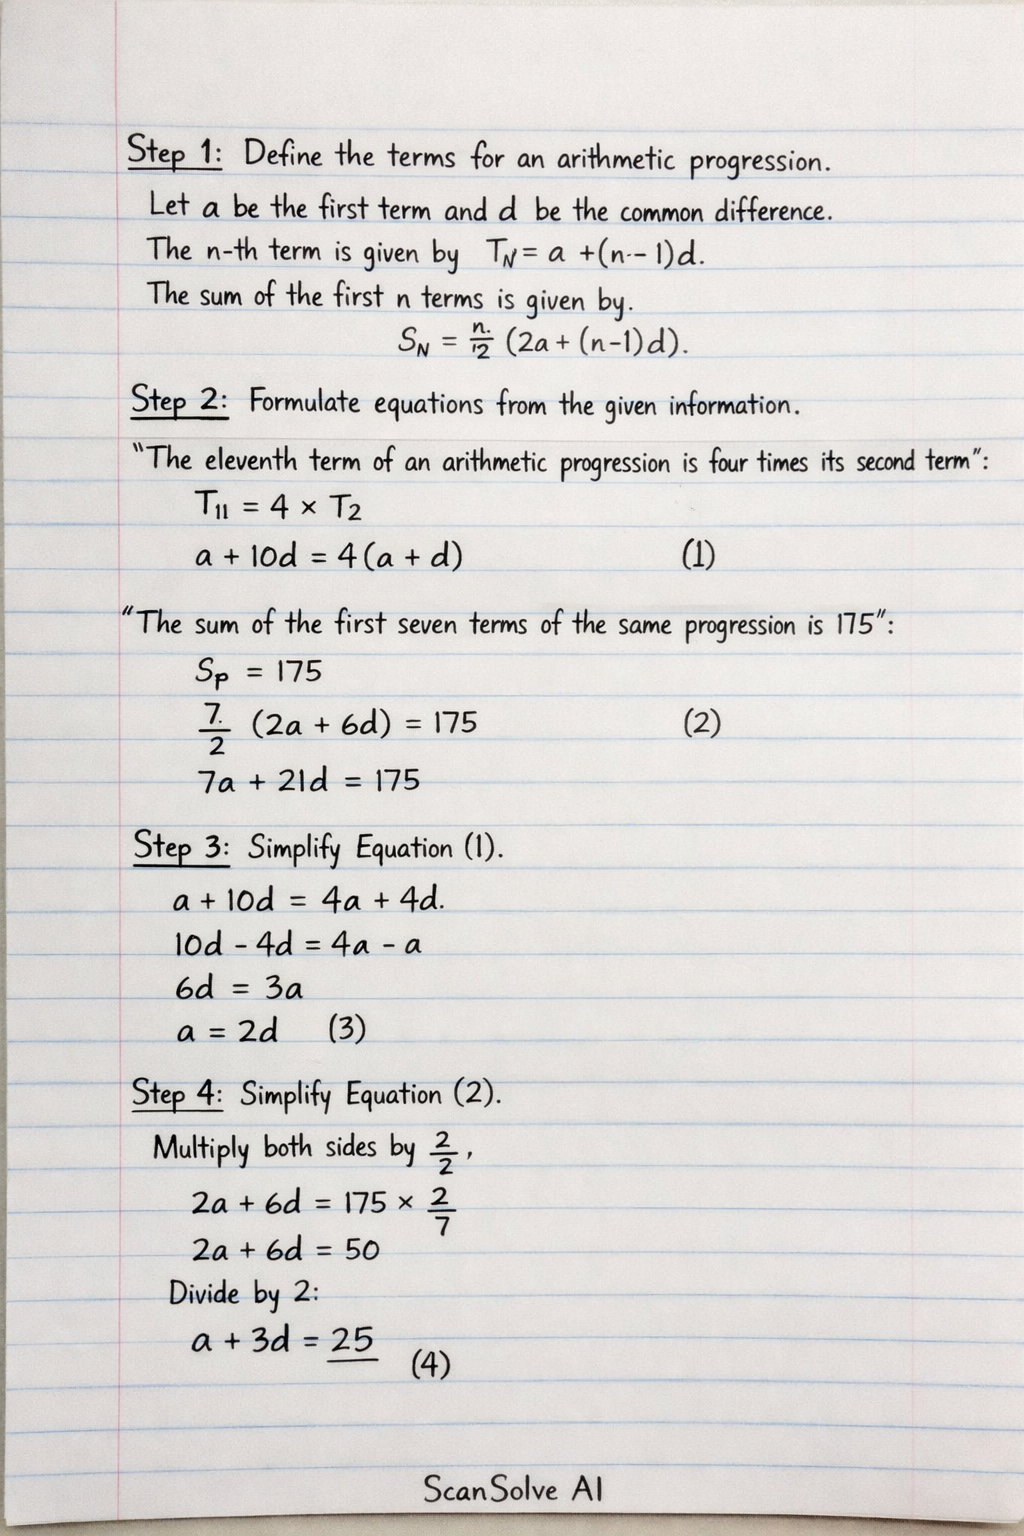 Step 1: Define the terms for an arithmetic progression.
Let a be the first term and d be the common difference.
The n-th term is given by T_N = a + (n-- 1)d.
The sum of the first n terms is given by.
S_N = n./12 (2a + (n-1)d).
Step 2: Formulate equations from the given information.
"The eleventh term of an arithmetic progression is four times its second term":
T_11 = 4 × T_2
a + 10d = 4(a + d) (1)
"The sum of the first seven terms of the same progression is 175":
S_p = 175
7./2 (2a + 6d) = 175 (2)
7a + 21d = 175
Step 3: Simplify Equation (1).
a + 10d = 4a + 4d.
10d - 4d = 4a - a
6d = 3a
a = 2d (3)
Step 4: Simplify Equation (2).
Multiply both sides by 2/2,
2a + 6d = 175 × 2/7
2a + 6d = 50
Divide by 2:
a + 3d = 25
(4)
ScanSolve AI